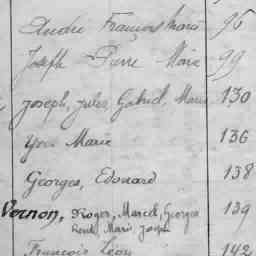 André François Marie 96
Joseph Pierre Marie 99
Joseph, Jules, Gabriel, Marie 130
Yves Marie 136
Georges, Edouard 138
Vernon, Roger, Marcel, Georges 139
René Marie Joseph
François Léon 142